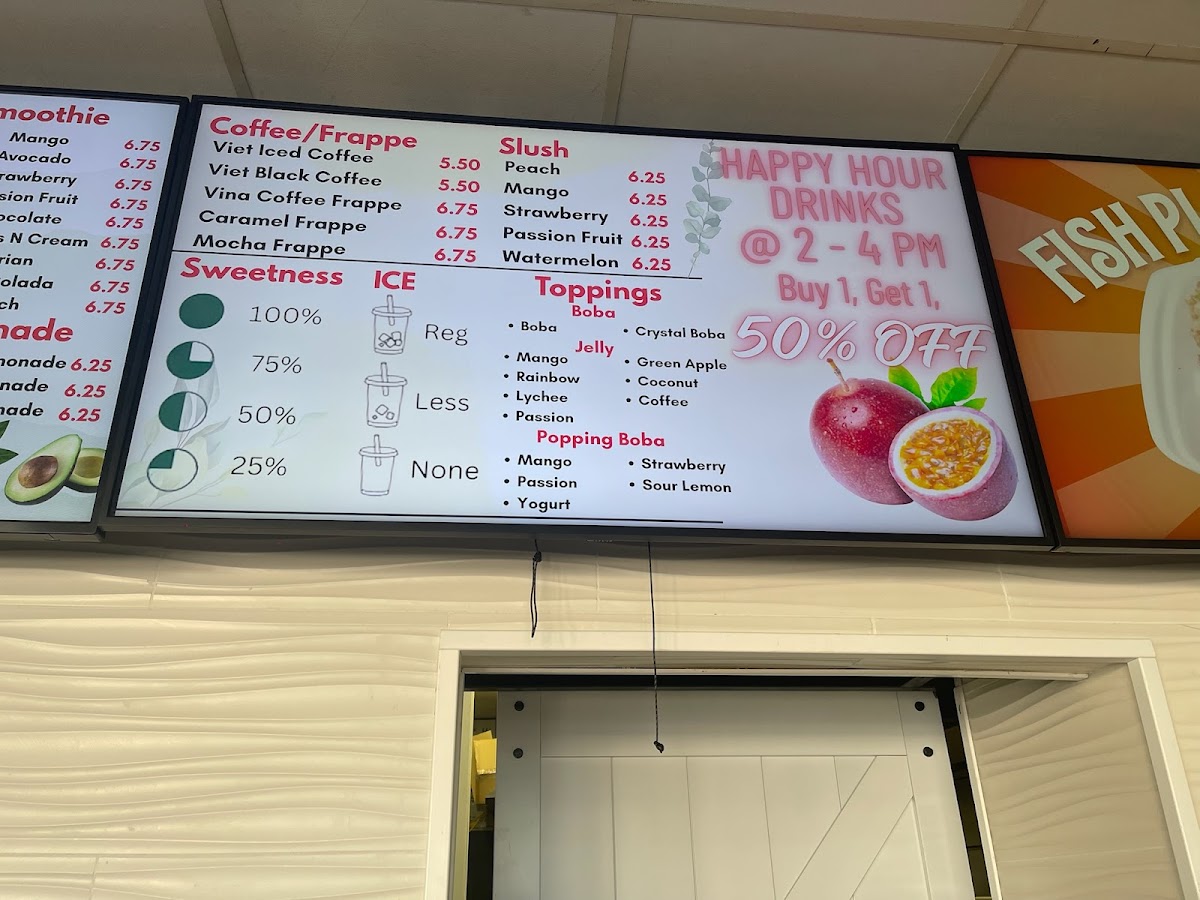 moothie
Mango 6.75
Avocado 6.75
rawberry 6.75
sion Fruit 6.75
ocolate 6.75
s N Cream 6.75
rian 6.75
olada 6.75
ch 6.75
nade
monade 6.25
onade 6.25
nade 6.25
Coffee/Frappe
Viet Iced Coffee 5.50
Viet Black Coffee 5.50
Vina Coffee Frappe 6.75
Caramel Frappe 6.75
Mocha Frappe 6.75
Slush
Peach 6.25
Mango 6.25
Strawberry 6.25
Passion Fruit 6.25
Watermelon 6.25
Sweetness
100%
75%
50%
25%
ICE
Reg
Less
None
Toppings
Boba
• Boba
• Crystal Boba
Jelly
• Mango
• Rainbow
• Lychee
• Passion
• Green Apple
• Coconut
• Coffee
Popping Boba
• Mango
• Passion
• Yogurt
• Strawberry
• Sour Lemon
HAPPY HOUR
DRINKS
@ 2 - 4 PM
Buy 1, Get 1,
50% OFF
FISH PL